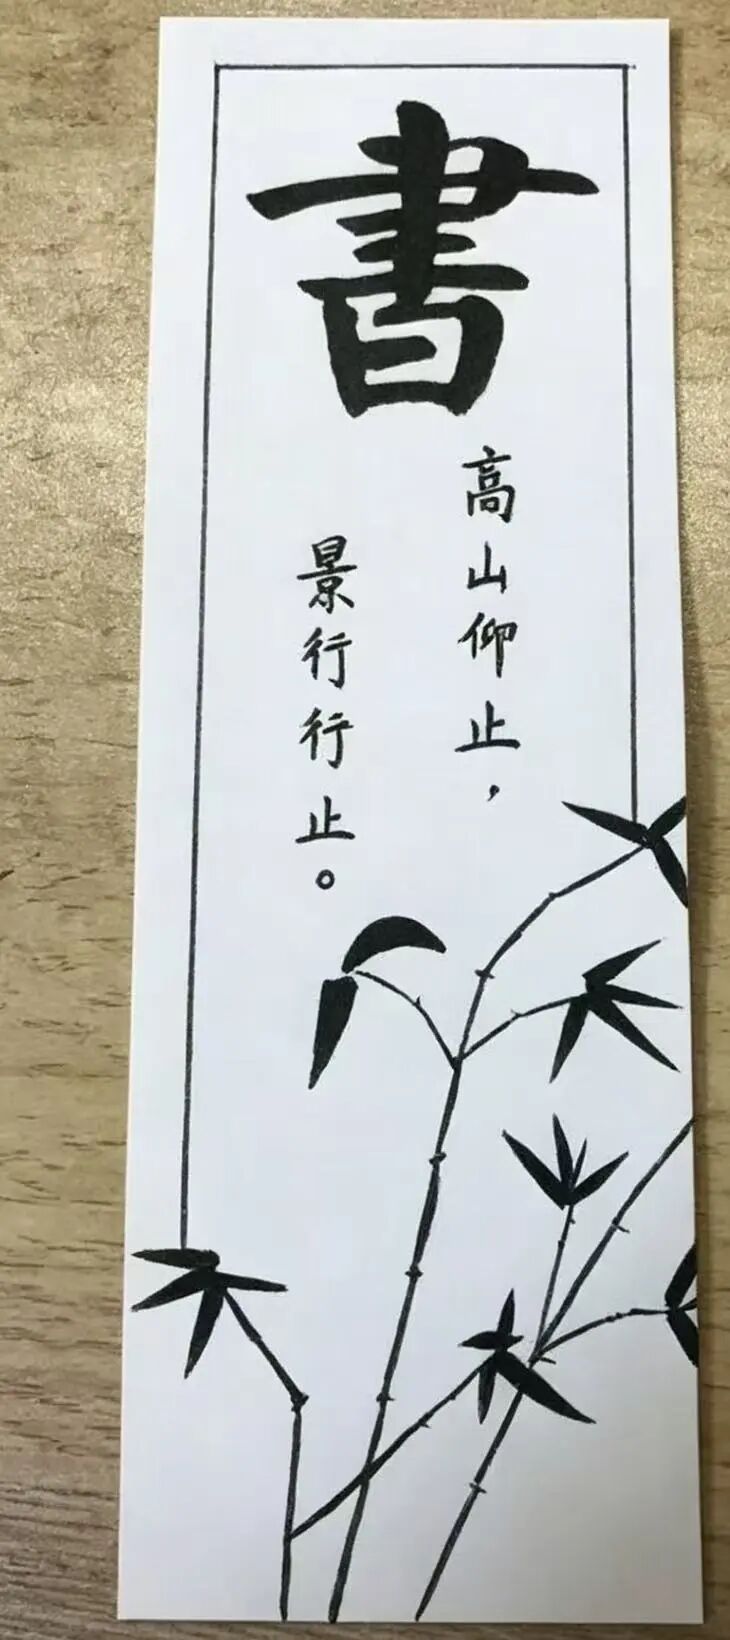 書
高山仰止，
景行行止。